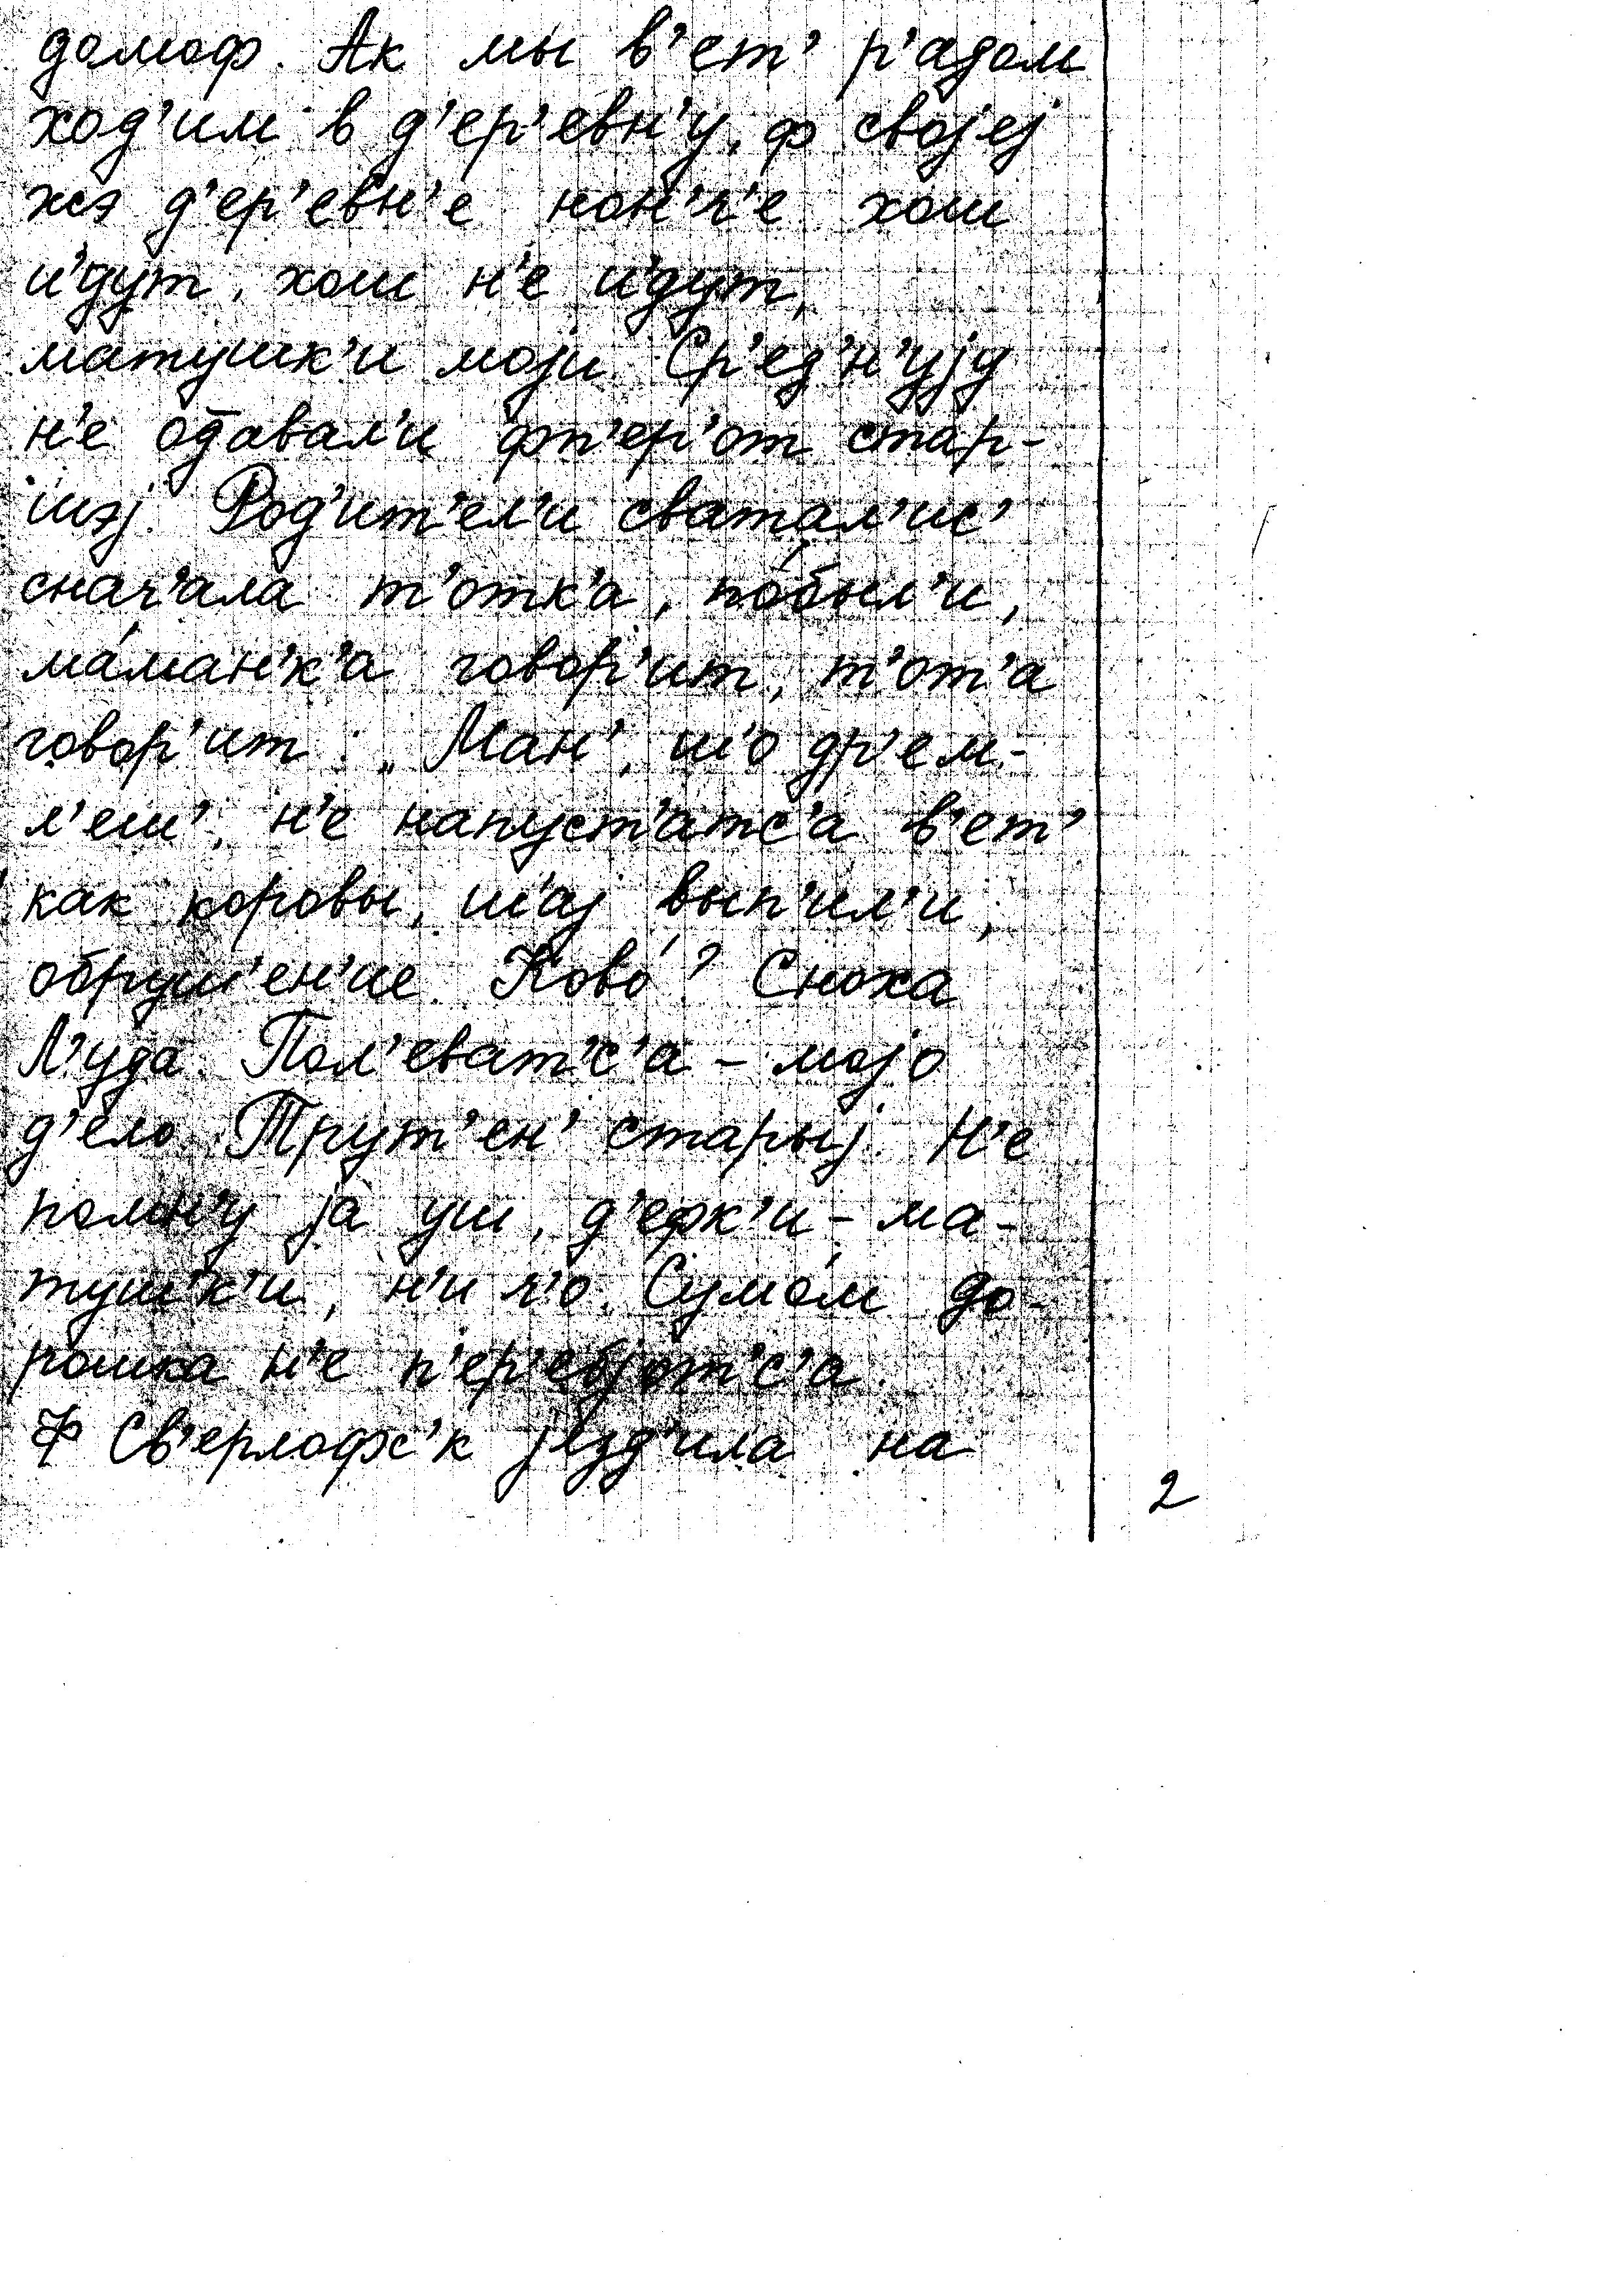 домоф. Ак мы в'ет' р'адом
ход'им в д'ер'евн'у, ф својеј
жэ д'ер'евн'е нон'ч'е хош
и'дут, хош н'е и'дут,
матушк'и моји. Ср'ед'н'ују
н'е од̄авал'и фп'ер'от стар-
шэј. Род'ит'ел'и сватал'ис'
снач'ала т'отк'а, побы́л'и,
ма́ман'к'а говор'ит, т'от'а
говор'ит: „Ман', ш'о др'ем-
л'еш', н'е напуст'атс'а в'ет'
как коровы, ш'ај вып'ил'и,
обруш'ен'ие. Ково́? Сноха
Л'уда. Пол'еват'с'а – мојо
д'ело. Трут'ен' старыј. Н'е
помн'у ја уш, д'ефк'и – ма-
тушк'и, н'и ч'о. Сумо́м до-
рошка н'е п'ер'ебјот'с'а.
Ф Св'ерлофс'к језд'ила на
2